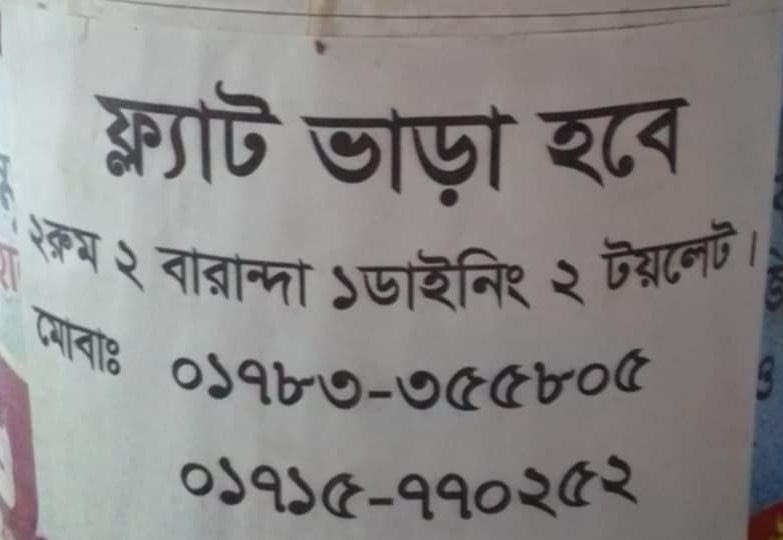 ফ্ল্যাট ভাড়া হবে
২রুম ২ বারান্দা ১ডাইনিং ২ টয়লেট।
মোবাঃ ০১৭৮৩-৩৫৫৮০৫
০১৭১৫-৭৭০২৫২